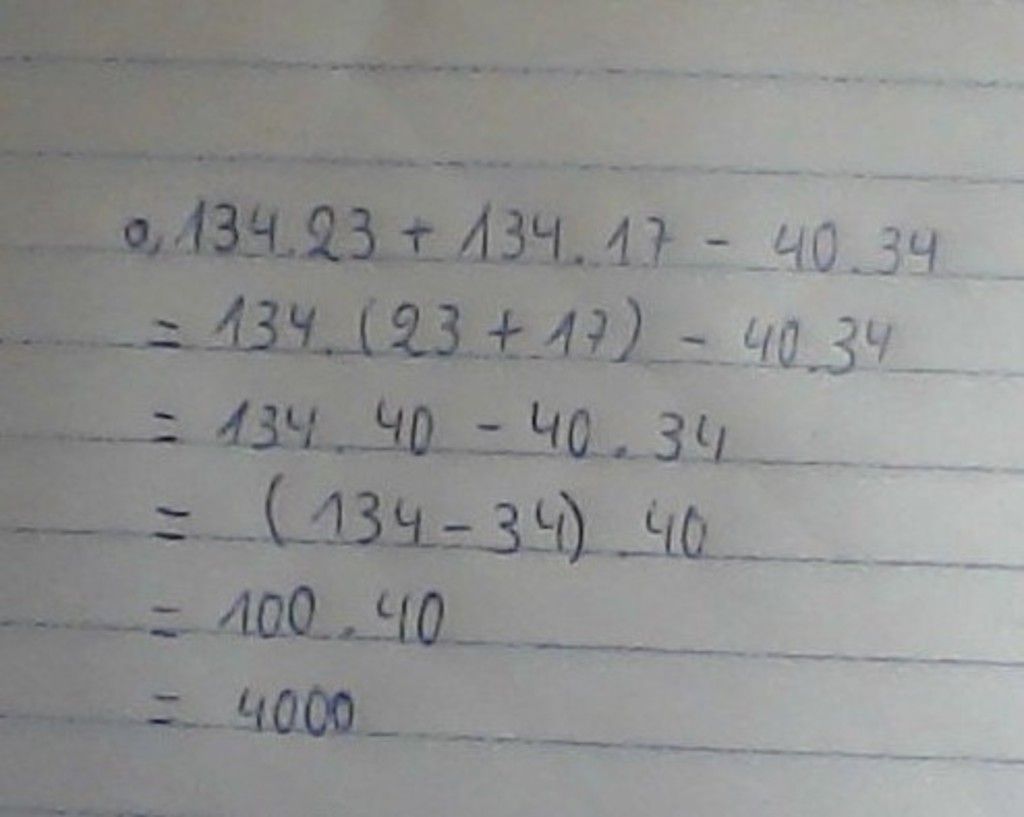 a, 134.23 + 134.17 - 40.34
= 134.(23 + 17) - 40.34
= 134.40 - 40.34
= (134 - 34) 40
= 100.40
= 4000